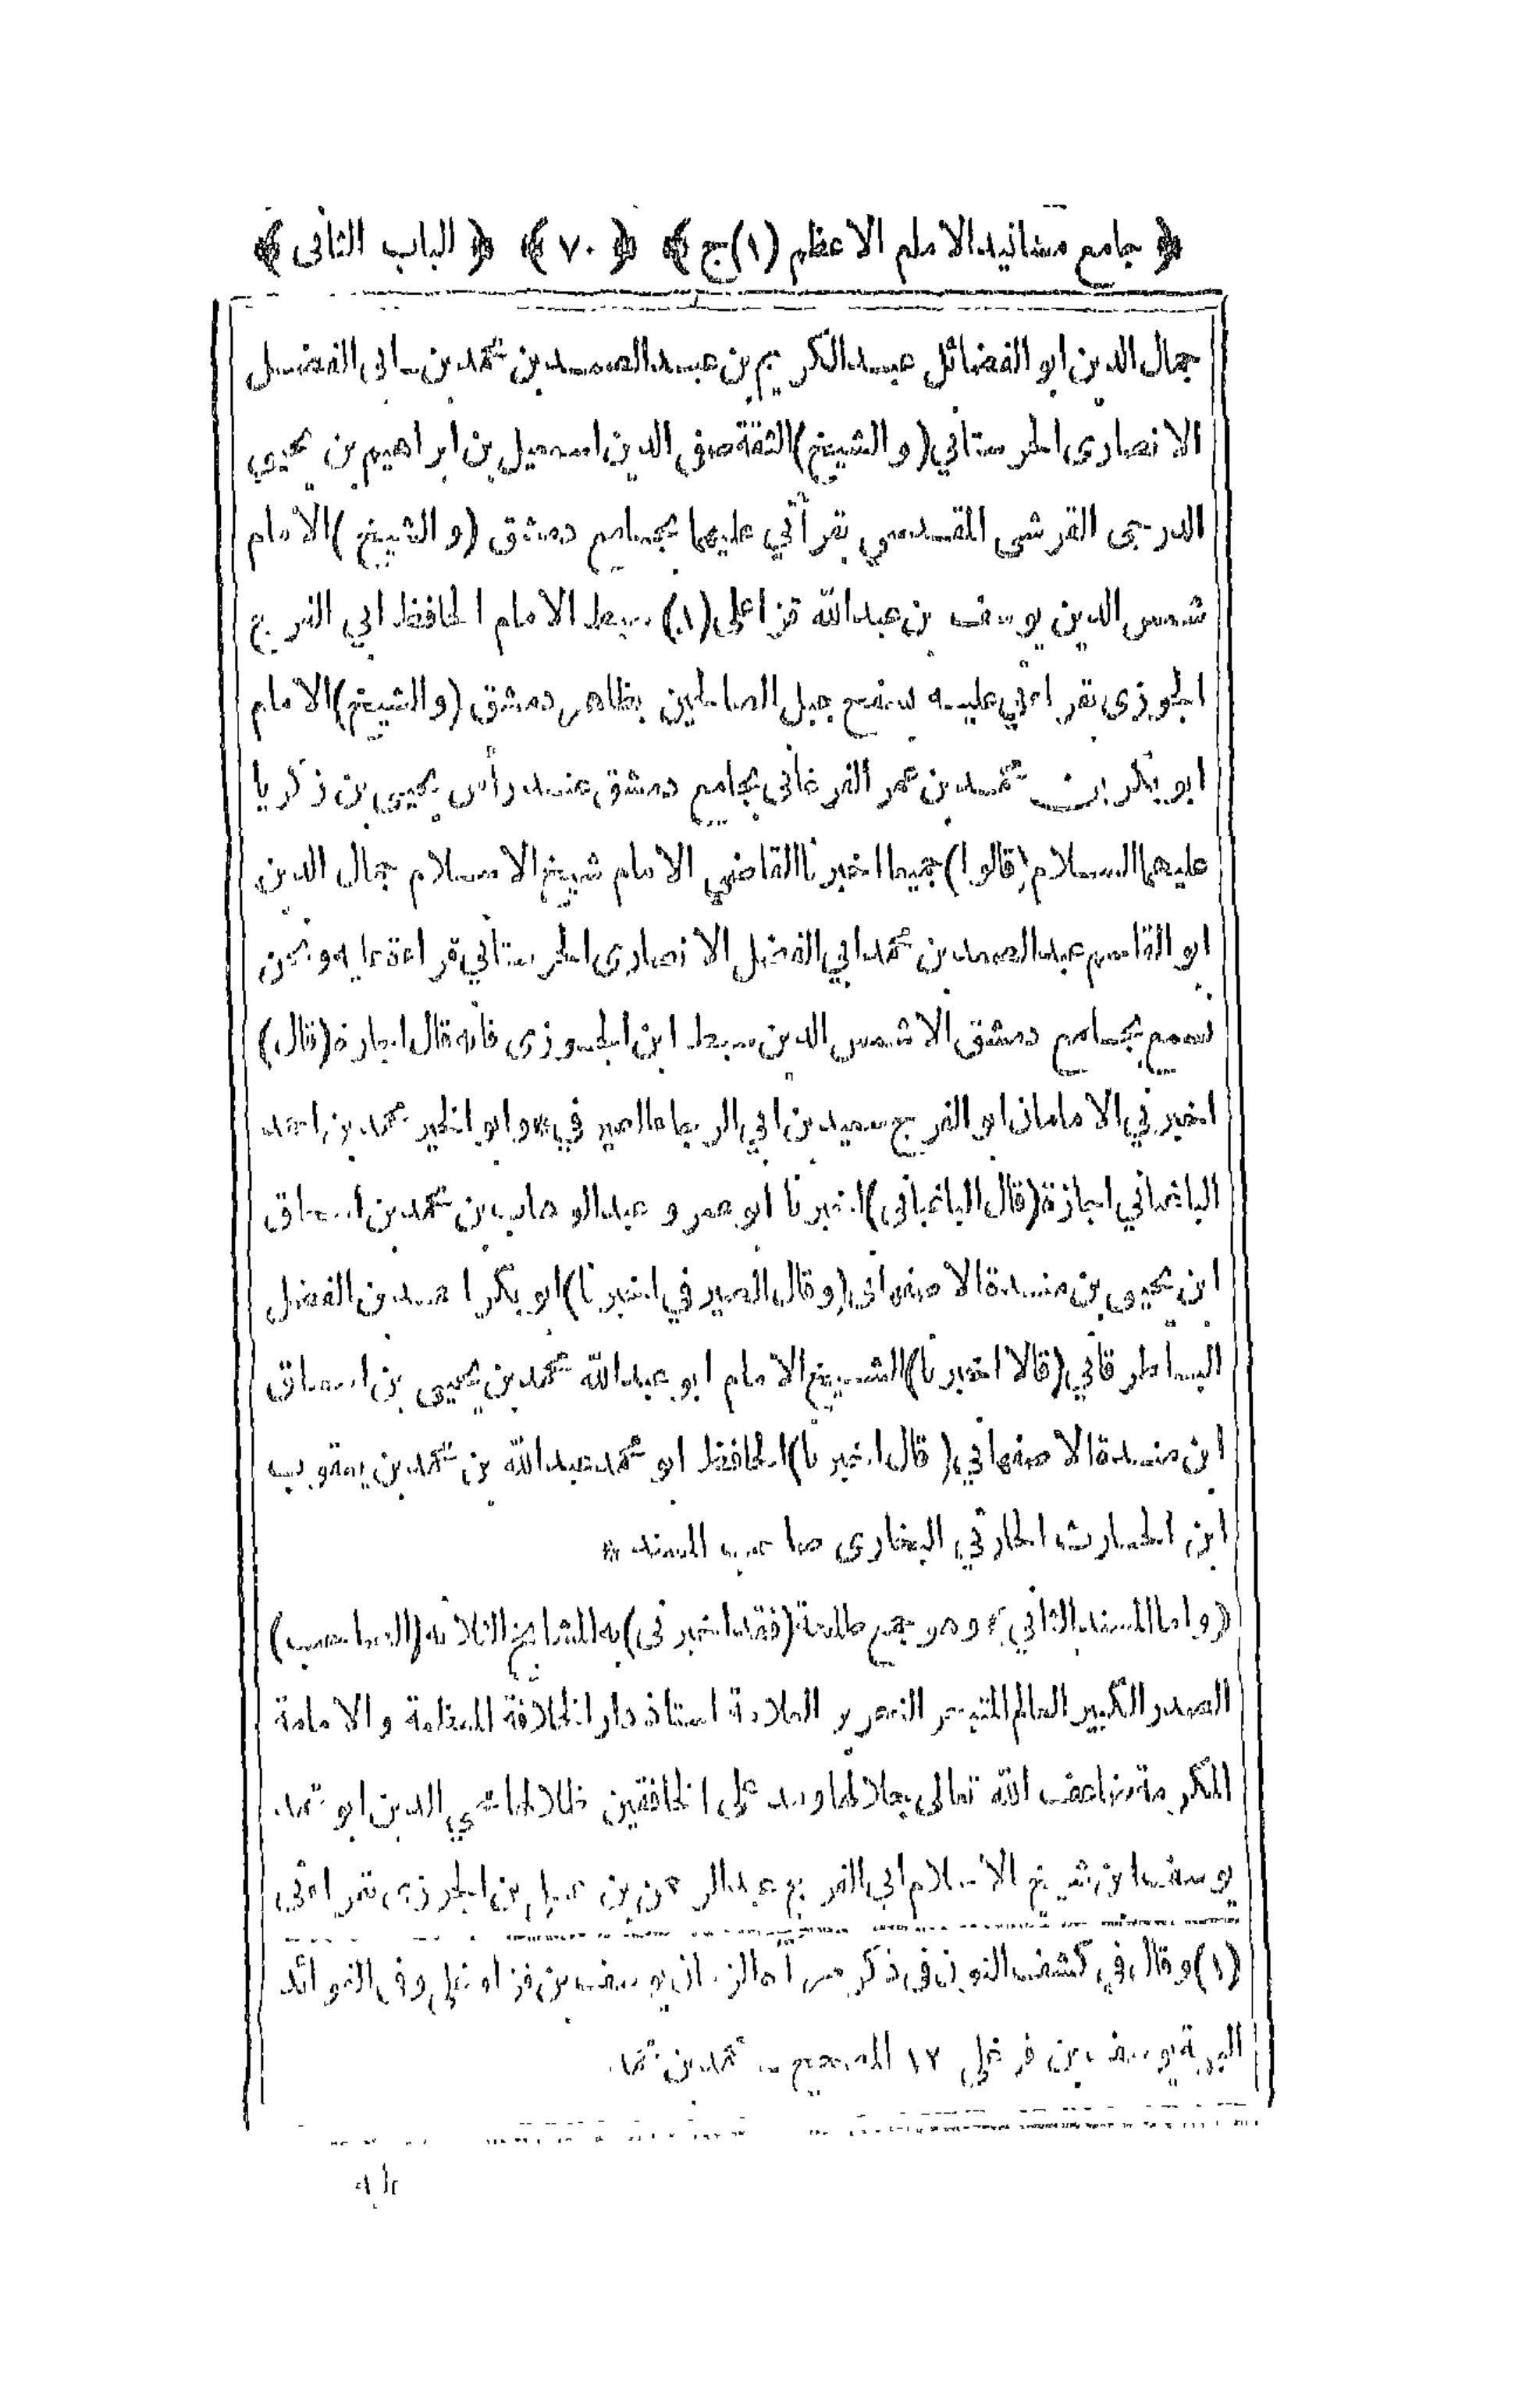 ﴿ جامع مسانيد الامام الاعظم (١) ج ﴾ ﴿ ٧٠ ﴾ ﴿ الباب الثانى ﴾
جمال الدين ابو الفضائل عبد الكريم بن عبد الصمد بن محمد بن ابى الفضل
الانصارى الحرستاني (والشيخ) الثقة صفى الدين اسمعيل بن ابراهيم بن يحيى
الدرجى القرشى المقدسي بقرأتي عليهما بجامع دمشق (والشيخ) الامام
شمس الدين يوسف بن عبدالله قزاعلى (١) سبط الامام الحافظ ابي الفرج
الجوزى بقراءتي عليه بسفح جبل الصالحين بظاهر دمشق (والشيخ) الامام
ابو بكر بن محمد بن عمر الفرغانى بجامع دمشق عند رأس يحيى بن زكريا
عليهما السلام (قالوا) جميعا اخبرنا القاضي الامام شيخ الاسلام جمال الدين
ابو القاسم عبد الصمد بن محمد ابي الفضل الانصارى الحرستاني قراءة عليه ونحن
نسمع بجامع دمشق الا شمس الدين سبط ابن الجوزى فانه قال اجازة (قال)
اخبرني الامامان ابو الفرج سعيد بن ابي الرجاء الصيرفي وابو الخير محمد بن احمد
الباغبانى اجازة (قال الباغبانى) اخبرنا ابو عمرو عبد الوهاب بن محمد بن اسحاق
ابن يحيى بن مندة الاصفهانى (وقال الصيرفي اخبرنا) ابو بكر احمد بن الفضل
الباطرقاني (قالا اخبرنا) الشيخ الامام ابو عبدالله محمد بن يحيى بن اسحاق
ابن مندة الاصفهاني (قال اخبرنا) الحافظ ابو محمد عبد الله بن محمد بن يعقوب
ابن الحارث الحارثي البخارى صاحب المسند *
(واما المسند الثاني) وهو جمع طلحة (فقد اخبرنى) به المشايخ الثلاثة (الصاحب)
الصدر الكبير العالم المتبحر النحرير العلامة استاذ دار الخلافة المعظمة والامامة
المكرمة ضاعف الله تعالى جلالها ومد على الخافقين ظلالها محي الدين ابو محمد
يوسف ابن شيخ الاسلام ابى الفرج عبد الرحمن بن علي بن الجوزى بقراءتى
(١) وقال في كشف الظنون فى ذكر مرآة الزمان يوسف بن قزاوغلى وفى الفوائد
البهية يوسف بن فرغلى ١٢ المصحح محمد بن محمد